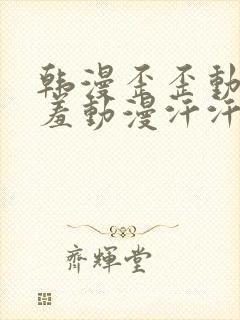 韩漫歪歪動
羞動漫汗汗
齊輝堂